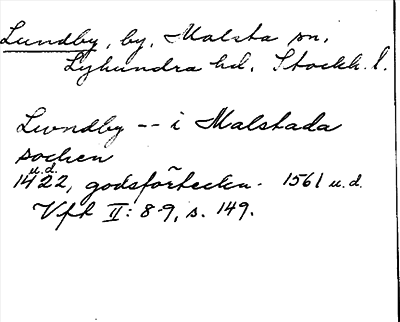 Lundby, by, Malsta sn,
Lyhundra hd. Stockh. l.
Lwndby -- i Malstada
sochen
u.d.
1422, godsförteckn. 1561 u.d.
Vfk II: 8-9, s. 149.